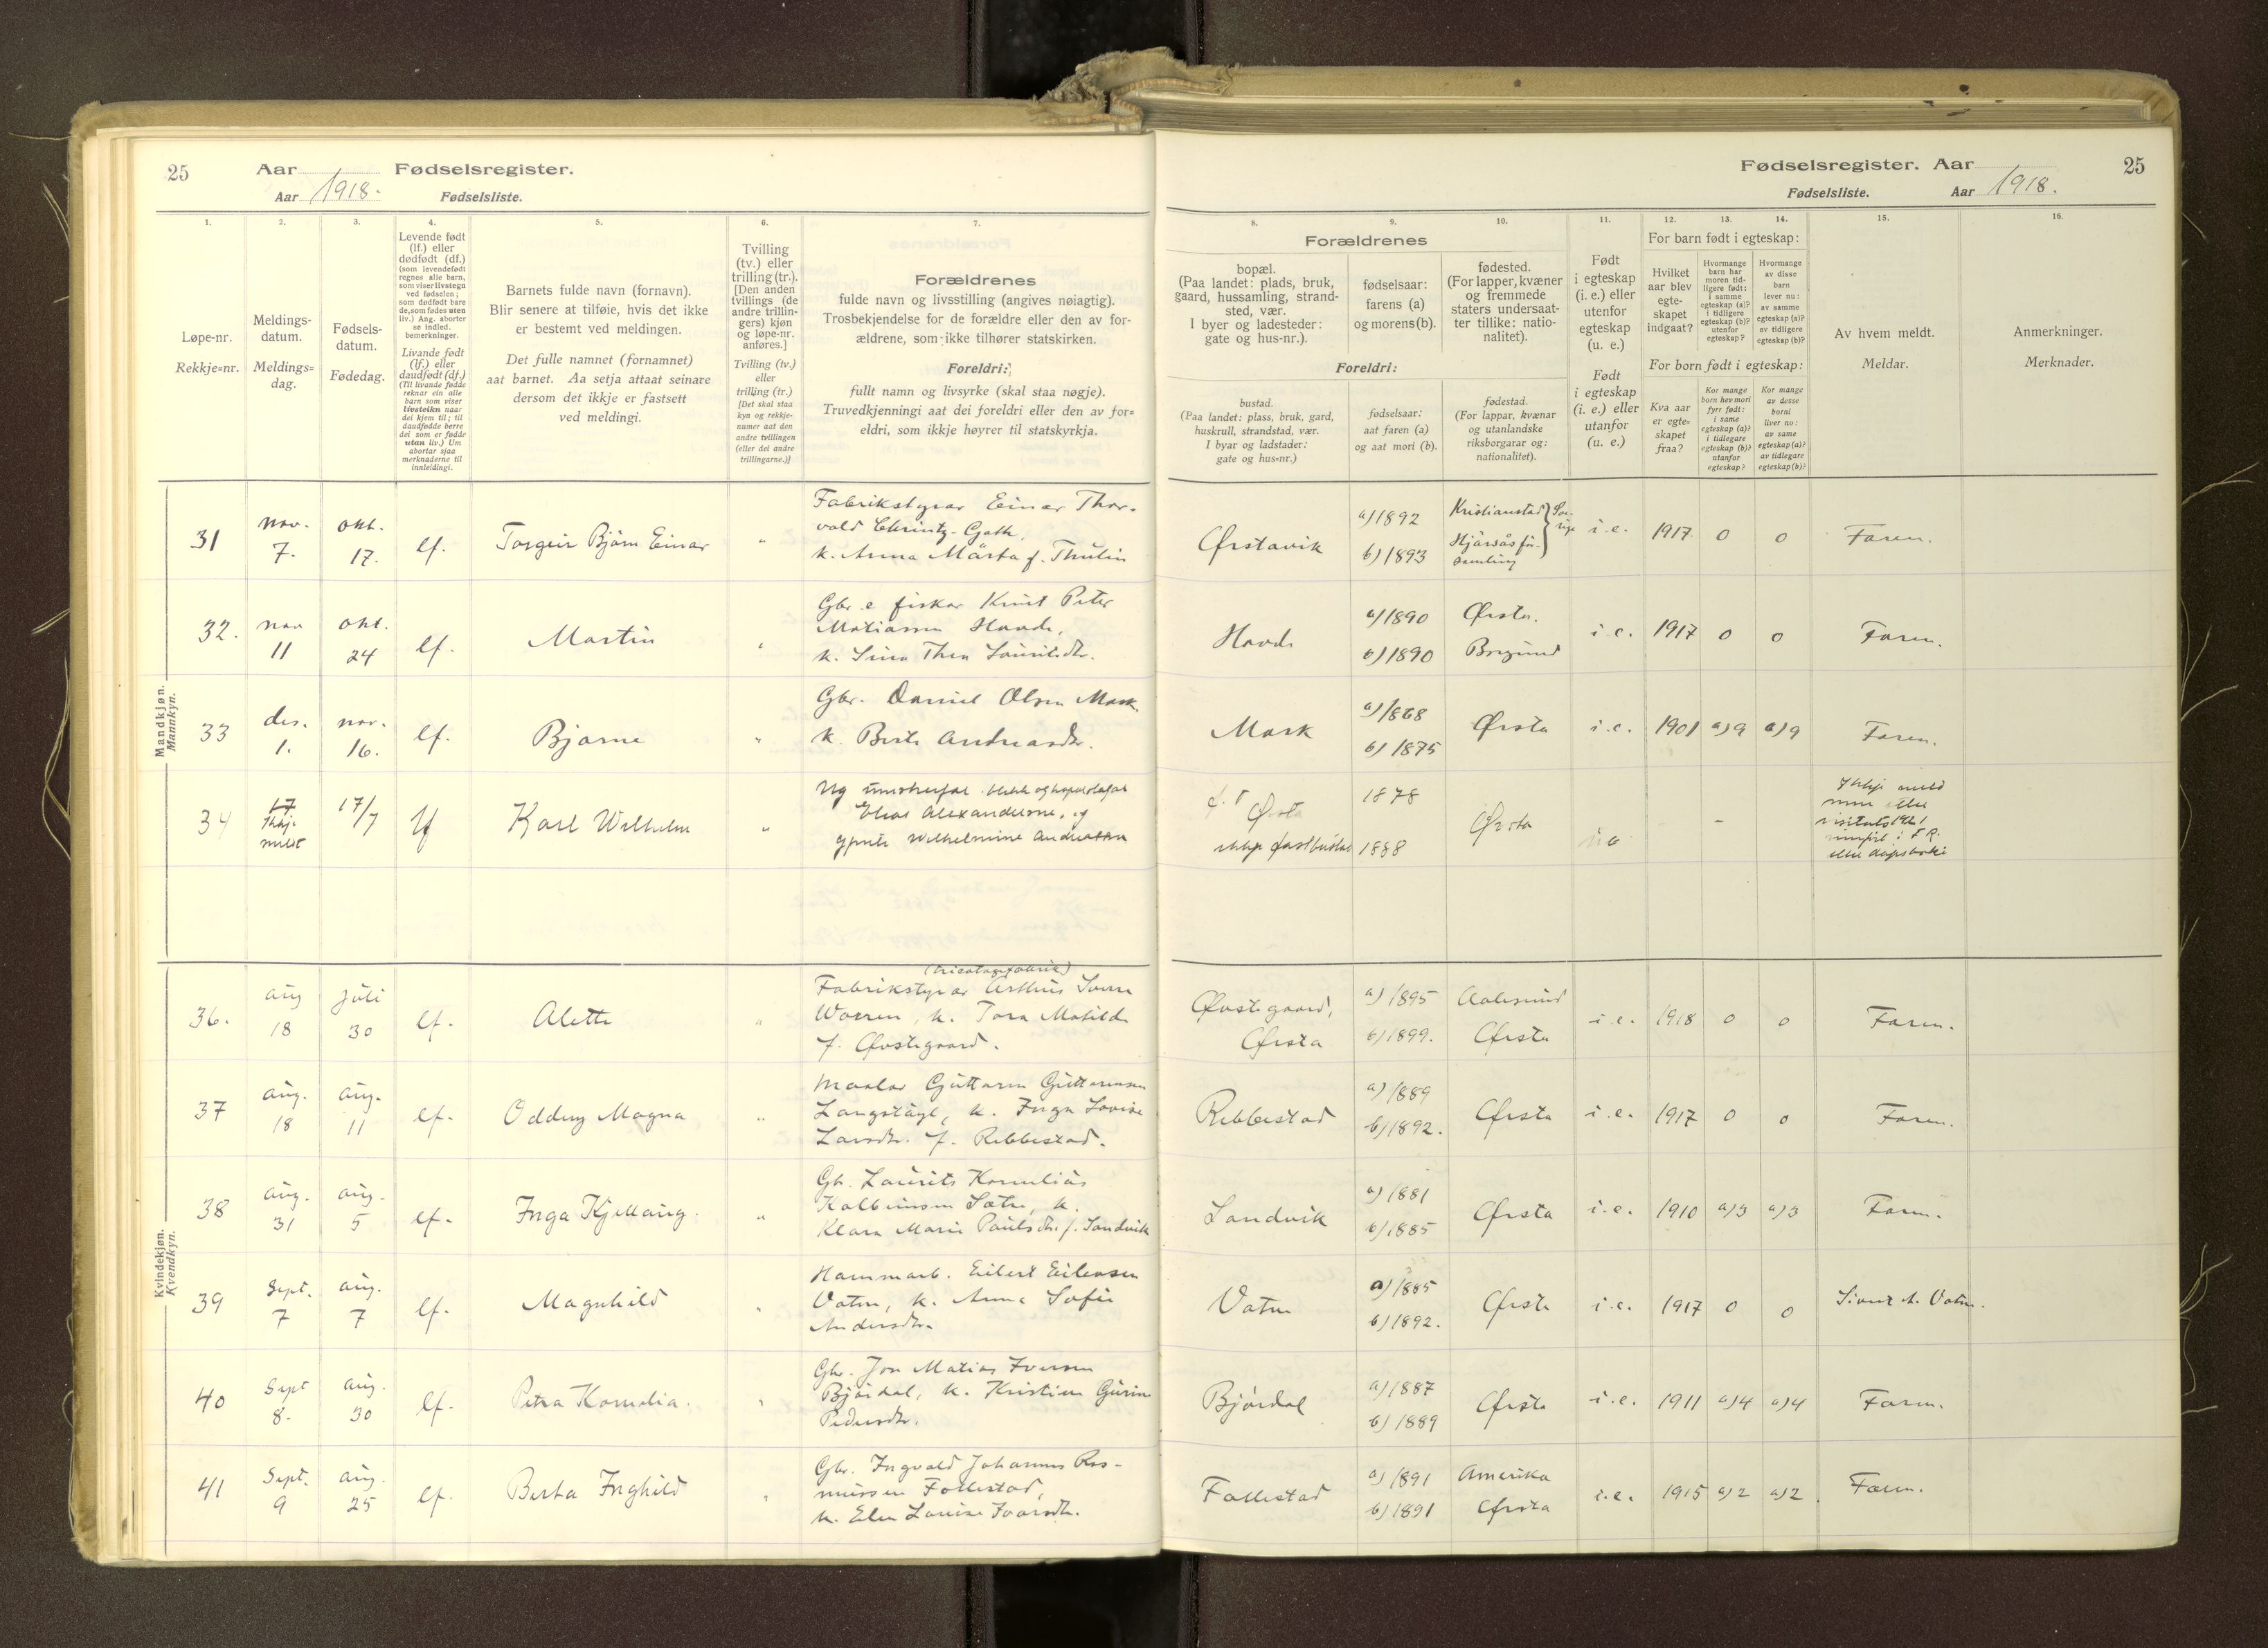 25
Aar
Fødselsregister.
Aar 1918.
Fødselsliste.
Fødselsregister. Aar
25
Fødselsliste.
Aar 1918.
1.
2.
3.
4.
5.
6.
7.
8.
9.
10.
11.
12.
13.
14.
15.
16.
Løpe-nr.
Rekkje=nr.
Meldings-
datum.
Meldings=
dag.
Fødsels-
datum.
Fødedag.
Levende født
(lf.) eller
dødfødt (df.)
(som levendefødt
regnes alle barn,
som viser livstegn
ved fødselen;
som dødfødt bare
de, som fødes uten
liv.) Ang. aborter
se indled.
bemerkninger.
Livande født
(lf.) eller
daudfødt (df.)
(Til livande fødde
reknar ein alle
barn som viser
livsteikn naar
dei kjem til; til
daudfødde berre
dei som er fødde
utan liv.) Um
abortar sjaa
merknaderne til
innleidingi.
Barnets fulde navn (fornavn).
Blir senere at tilføie, hvis det ikke
er bestemt ved meldingen.
Det fulle namnet (fornamnet)
aat barnet. Aa setja attaat seinare
dersom det ikkje er fastsett
ved meldingi.
Tvilling
(tv.) eller
trilling (tr.).
[Den anden
tvillings (de
andre trillin-
gers) kjøn
og løpe-nr.
anføres.]
Tvilling (tv.)
eller
trilling (tr.)
[Det skal staa
kyn og rekkje-
numer aat den
andre tvillingen
(eller dei andre
trillingarne.)]
Forældrenes
fulde navn og livsstilling (angives nøiagtig).
Trosbekjendelse for de forældre eller den av for-
ældrene, som ikke tilhører statskirken.
Foreldri:
fullt namn og livsyrke (skal staa nøgje).
Truvedkjenningi aat dei foreldri eller den av for=
eldri, som ikkje høyrer til statskyrkja.
Forældrenes
bopæl.
(Paa landet: plads, bruk,
gaard, hussamling, strand-
sted, vær.
I byer og ladesteder:
gate og hus-nr.).
fødselsaar:
farens (a)
og morens (b).
fødested.
(For lapper, kvæner
og fremmede
staters undersaat-
ter tillike: natio-
nalitet).
Foreldri:
bustad.
(Paa landet: plass, bruk, gard,
huskrull, strandstad, vær.
I byar og ladstader:
gate og hus=nr.)
fødselsaar:
aat faren (a)
og aat mori (b).
fødestad.
(For lappar, kvænar
og utanlandske
riksborgarar og:
nationalitet).
Født
i egteskap
(i. e.) eller
utenfor
egteskap
(u. e.)
Født
i egteskap
(i. e.) eller
utanfor
(u. e.)
For barn født i egteskap:
Hvilket
aar blev
egte-
skapet
indgaat?
Hvormange
barn har
moren tid-
ligere født:
i samme
egteskap (a)?
i tidligere
egteskap (b)?
utenfor
egteskap?
Hvormange
av disse
barn
lever nu:
av samme
egteskap (a)?
av tidligere
egteskap (b)?
For born født i egteskap:
Kva aar
er egte-
skapet
fraa?
Kor mange
born hev mori
fyrr født:
i same
egteskap (a)?
i tidlegare
egteskap (b)?
utanfor
egteskap?
Kor mange
av desse
borni
liver no:
av same
egteskap (a)?
av tidlegare
egteskap (b)?
Av hvem meldt.
Meldar.
Anmerkninger.
Merknader.
Mandkjøn.
Mannkyn.
31 nov. 7. okt. 17. lf. Torgeir Bjørn Einar "
Fabrikstyrar Einar Thor-
vald Christz-Goth,
k. Anna Märta f. Thulin
Ørstavik a) 1892 b) 1893 Kristianstad Hjärsås för-samling } Sve-rige i. e. 1917 0 0 Faren.
32. nov 11 okt. 24 lf. Martin "
Gbr. e fiskar Knut Peter
Matiassen Hovde,
k. Sina Thea Lauritsdtr.
Hovde a) 1890 b) 1890 Ørsta. Borgund i. e. 1917 0 0 Faren.
33 des. 1. nov. 16. lf. Bjarne "
Gbr. Daniel Olsen Mork.
k. Berte Andreasdtr.
Mork a) 1868 b) 1875 Ørsta i. e. 1901 a) 9 a) 9 Faren.
34 17 Ikkje meldt 17/7 lf Karl Wilhelm "
Ug umstreifar
Elias Alexanderse, og
gjente Wilhelmine Andreassen
Ørsta
ikkje fastbustad 1878 1888 Ørsta –
Ikkje meld
eller
1921
i F. R.
eller dåpsboki
Kvindekjøn.
Kvendkyn.
36. aug 18 juli 30 lf. Alette "
(tricotagefabrik)
Fabrikstyrar Arthur Sverre
Worren, k. Tora Matilde
f. Øvstegaard.
Øvstegaard, Ørsta a) 1895 b) 1899. Aalesund Ørsta i. e. 1918 0 0 Faren.
37 aug. 18 aug. 11 lf. Oddny Magna "
Maalar Guttorm Guttormsen
Langstøyl, k. Inga Lovise
Larsdtr. f. Rebbestad.
Rebbestad a) 1889 b) 1892. Ørsta i. e. 1917 0 0 Faren.
38 aug. 31 aug. 5 lf. Inga Kjellaug. "
Gb. Laurits Kornelius
Kolbeinsen Sætre, k.
Klara Marie Paulsdtr. f. Sandvik
Sandvik a) 1881 b) 1885 Ørsta i. e. 1910 a) 3 a) 3 Faren.
39 Sept. 7 aug. 7 lf. Magnhild "
Hammarb. Eilert Eilertsen
Vatne, k. Anna Sofie
Andersdtr.
Vatne a) 1885 b) 1892. Ørsta i. e. 1917 0 0 Sivert A. Vatne.
40 Sept 8. aug. 30 lf. Petra Kornelia. "
Gbr. Jon Matias Iversen
Bjørdal, k. Kristine Gurine
Pedersdtr.
Bjørdal a) 1887 b) 1889 Ørsta i. e. 1911 a) 4 a) 4 Faren.
41 Sept. 9 aug. 25 lf. Berta Inghild "
Gbr. Ingvald Johannes Ras-
mussen Follestad,
k. Elen Lovise Ivarsdtr.
Follestad a) 1891 b) 1891 Amerika Ørsta i. e. 1915 a) 2 a) 2 Faren.